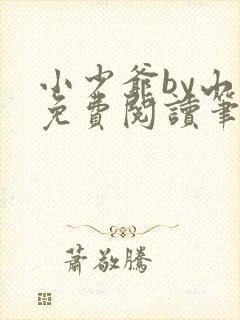 小少爺by小
免費閱讀筆
蕭敬騰